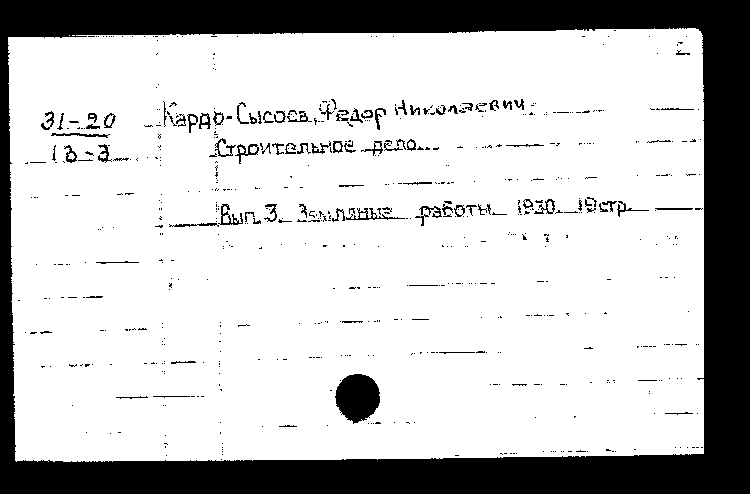 31-20
13-3
Кардо-Сысоев, Федор Николаевич.
Строительное дело...
Вып. 3. Земляные работы. 1930. 19стр.